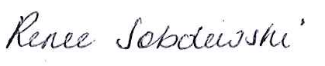 Renee Sobdewski